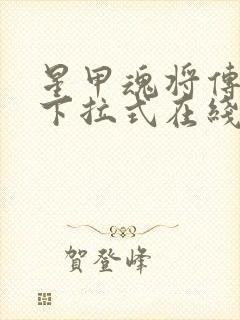 星甲魂将傳
下拉式在綫
賀登峰